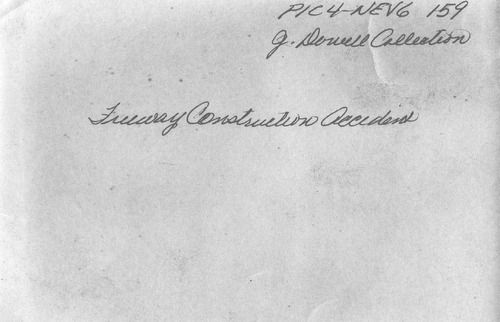 PIC4-NEV6 159
J. Dowell Collection
Freeway Construction Accident